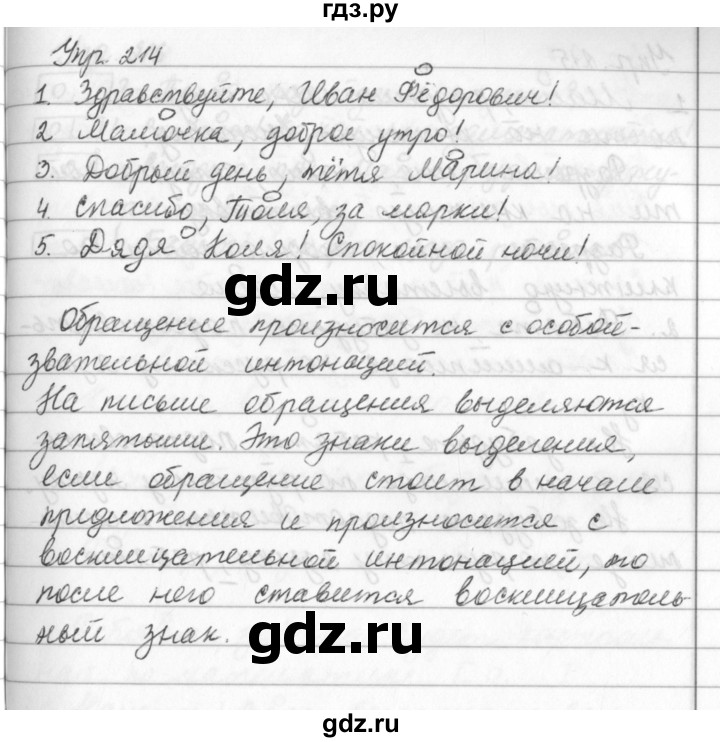 гдз.ру
Упр. 214
1. Здравствуйте, Иван Фёдорович!
2 Мамочка, доброе утро!
3. Добрый день, тётя Марина!
4. Спасибо, Толя, за марки!
5. Дядя Коля! Спокойной ночи!
gdz.ru
Обращение произносится с особой-
звательной интонацией.
На письме обращения выделяются
запятыми. Это знаки выделения,
если обращение стоит в начале
предложения и произносится с
восклицательной интонацией, то
после него ставится восклицатель
ный знак.
gdz.ru
gdz.ru